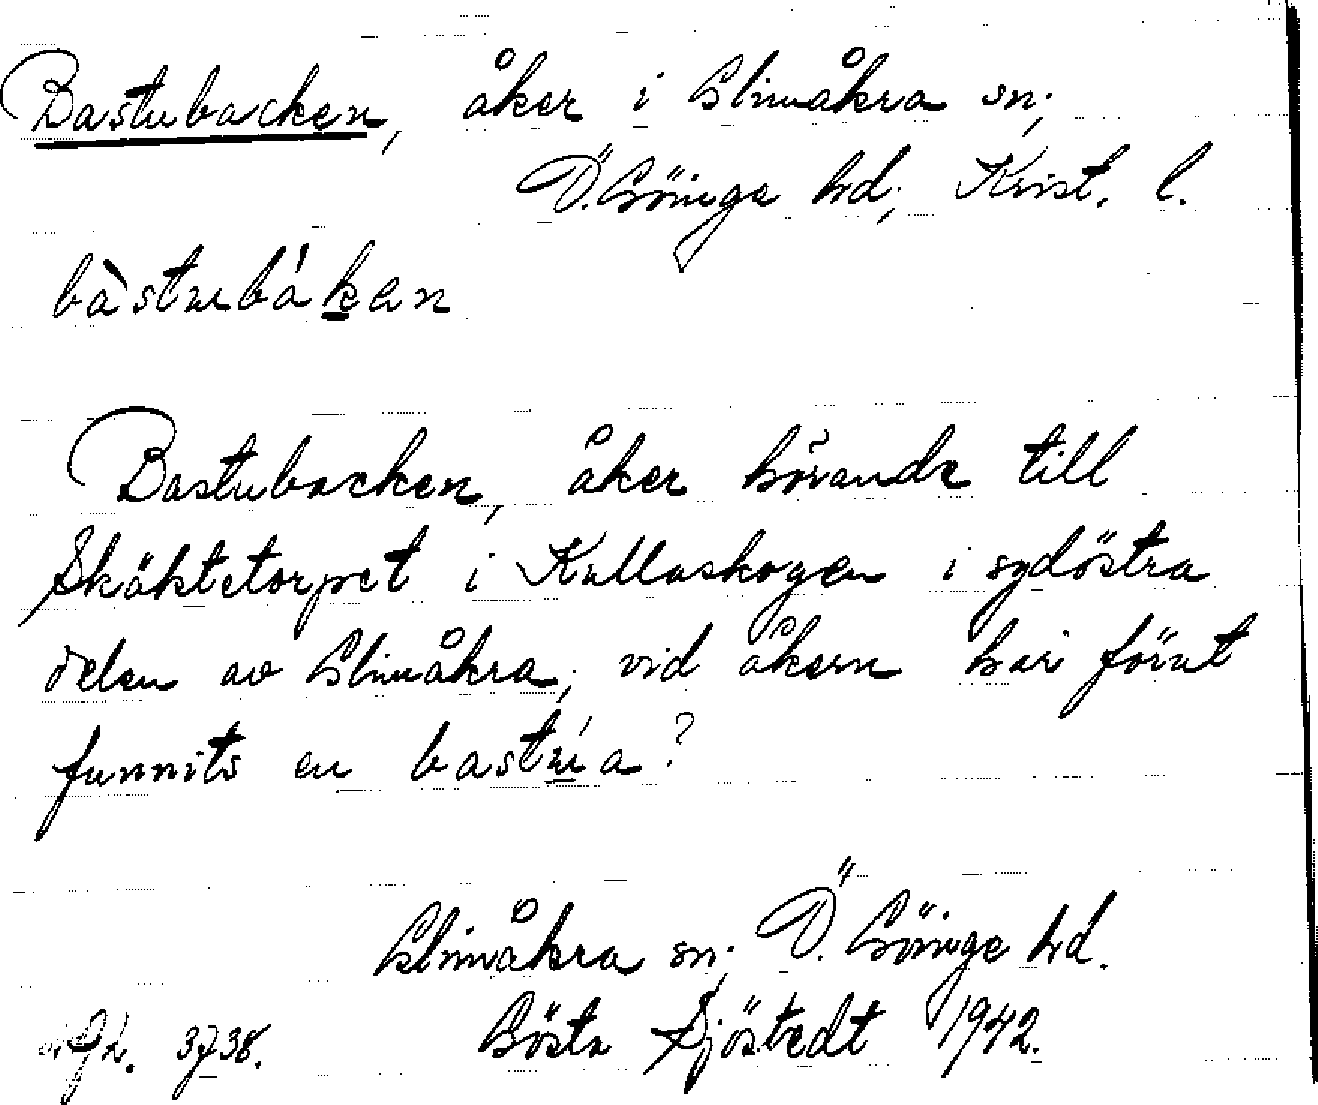 Bastubacken, åker i Glimåkra sn;
Ö. Göinge hd; Krist. l.
bàstubákan
Bastubacken, åker hörande till
Skäktetorpet i Kullaskogen i sydöstra
delen av Glimåkra; vid åkern har förut
funnits en bastúa?
Glimåkra sn; Ö. Göinge hd.
3738. Gösta Sjöstedt 1942.